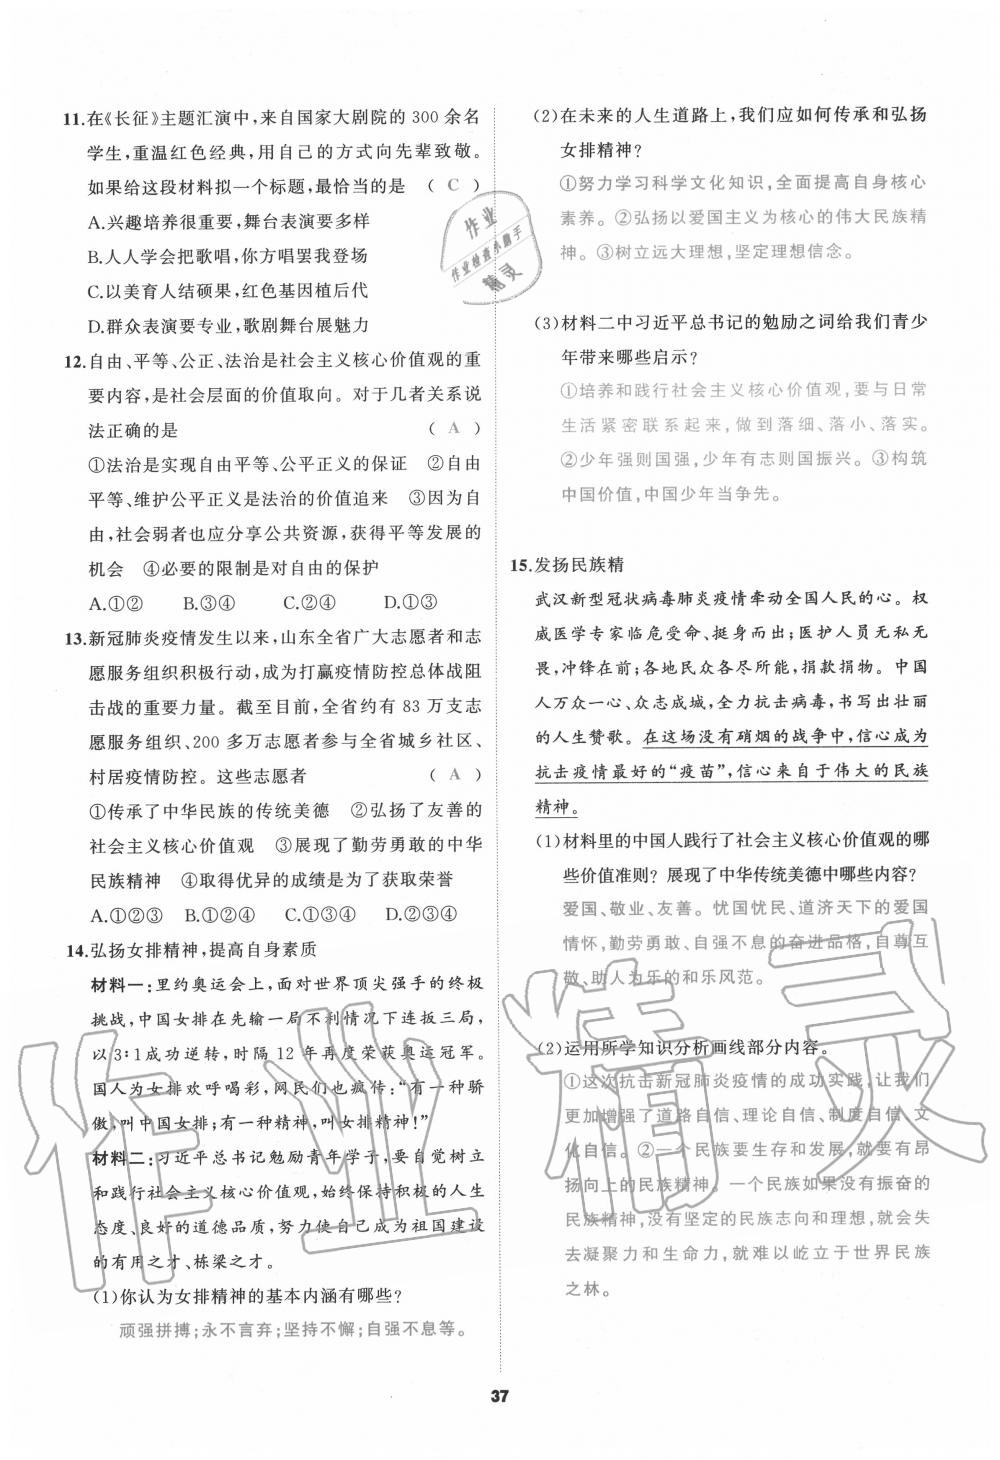 11.在《长征》主题汇演中,来自国家大剧院的 300 余名
学生,重温红色经典,用自己的方式向先辈致敬。
如果给这段材料拟一个标题,最恰当的是 ( C )
A.兴趣培养很重要,舞台表演要多样
B.人人学会把歌唱,你方唱罢我登场
C.以美育人结硕果,红色基因植后代
D.群众表演要专业,歌剧舞台展魅力
12.自由、平等、公正、法治是社会主义核心价值观的重
要内容,是社会层面的价值取向。对于几者关系说
法正确的是 ( A )
①法治是实现自由平等、公平正义的保证 ②自由
平等、维护公平正义是法治的价值追来 ③因为自
由,社会弱者也应分享公共资源,获得平等发展的
机会 ④必要的限制是对自由的保护
A.①② B.③④ C.②④ D.①③
13.新冠肺炎疫情发生以来,山东全省广大志愿者和志
愿服务组织积极行动,成为打赢疫情防控总体战阻
击战的重要力量。截至目前,全省约有 83 万支志
愿服务组织、200 多万志愿者参与全省城乡社区、
村居疫情防控。这些志愿者 ( A )
①传承了中华民族的传统美德 ②弘扬了友善的
社会主义核心价值观 ③展现了勤劳勇敢的中华
民族精神 ④取得优异的成绩是为了获取荣誉
A.①②③ B.①②④ C.①③④ D.②③④
14.弘扬女排精神,提高自身素质
材料一:里约奥运会上,面对世界顶尖强手的终极
挑战,中国女排在先输一局不利情况下连扳三局,
以 3∶1成功逆转,时隔 12 年再度荣获奥运冠军。
国人为女排欢呼喝彩,网民们也疯传:“有一种骄
傲,叫中国女排;有一种精神,叫女排精神!”
材料二:习近平总书记勉励青年学子,要自觉树立
和践行社会主义核心价值观,始终保持积极的人生
态度、良好的道德品质,努力使自己成为祖国建设
的有用之才、栋梁之才。
(1)你认为女排精神的基本内涵有哪些?
顽强拼搏;永不言弃;坚持不懈;自强不息等。
(2)在未来的人生道路上,我们应如何传承和弘扬
女排精神?
①努力学习科学文化知识,全面提高自身核心
素养。②弘扬以爱国主义为核心的伟大民族精
神。③树立远大理想,坚定理想信念。
(3)材料二中习近平总书记的勉励之词给我们青少
年带来哪些启示?
①培养和践行社会主义核心价值观,要与日常
生活紧密联系起来,做到落细、落小、落实。
②少年强则国强,少年有志则国振兴。③构筑
中国价值,中国少年当争先。
15.发扬民族精
武汉新型冠状病毒肺炎疫情牵动全国人民的心。权
威医学专家临危受命、挺身而出;医护人员无私无
畏,冲锋在前;各地民众各尽所能,捐款捐物。中国
人万众一心、众志成城,全力抗击病毒,书写出壮丽
的人生赞歌。在这场没有硝烟的战争中,信心成为
抗击疫情最好的“疫苗”,信心来自于伟大的民族
精神。
(1)材料里的中国人践行了社会主义核心价值观的哪
些价值准则?展现了中华传统美德中哪些内容?
爱国、敬业、友善。忧国忧民、道济天下的爱国
情怀,勤劳勇敢、自强不息的奋进品格,自尊互
敬、助人为乐的和乐风范。
(2)运用所学知识分析画线部分内容。
①这次抗击新冠肺炎疫情的成功实践,让我们
更加增强了道路自信、理论自信、制度自信、文
化自信。②一个民族要生存和发展,就要有昂
扬向上的民族精神。一个民族如果没有振奋的
民族精神,没有坚定的民族志向和理想,就会失
去凝聚力和生命力,就难以屹立于世界民族
之林。
37
作业
作业检查小助手
精灵
作业精灵